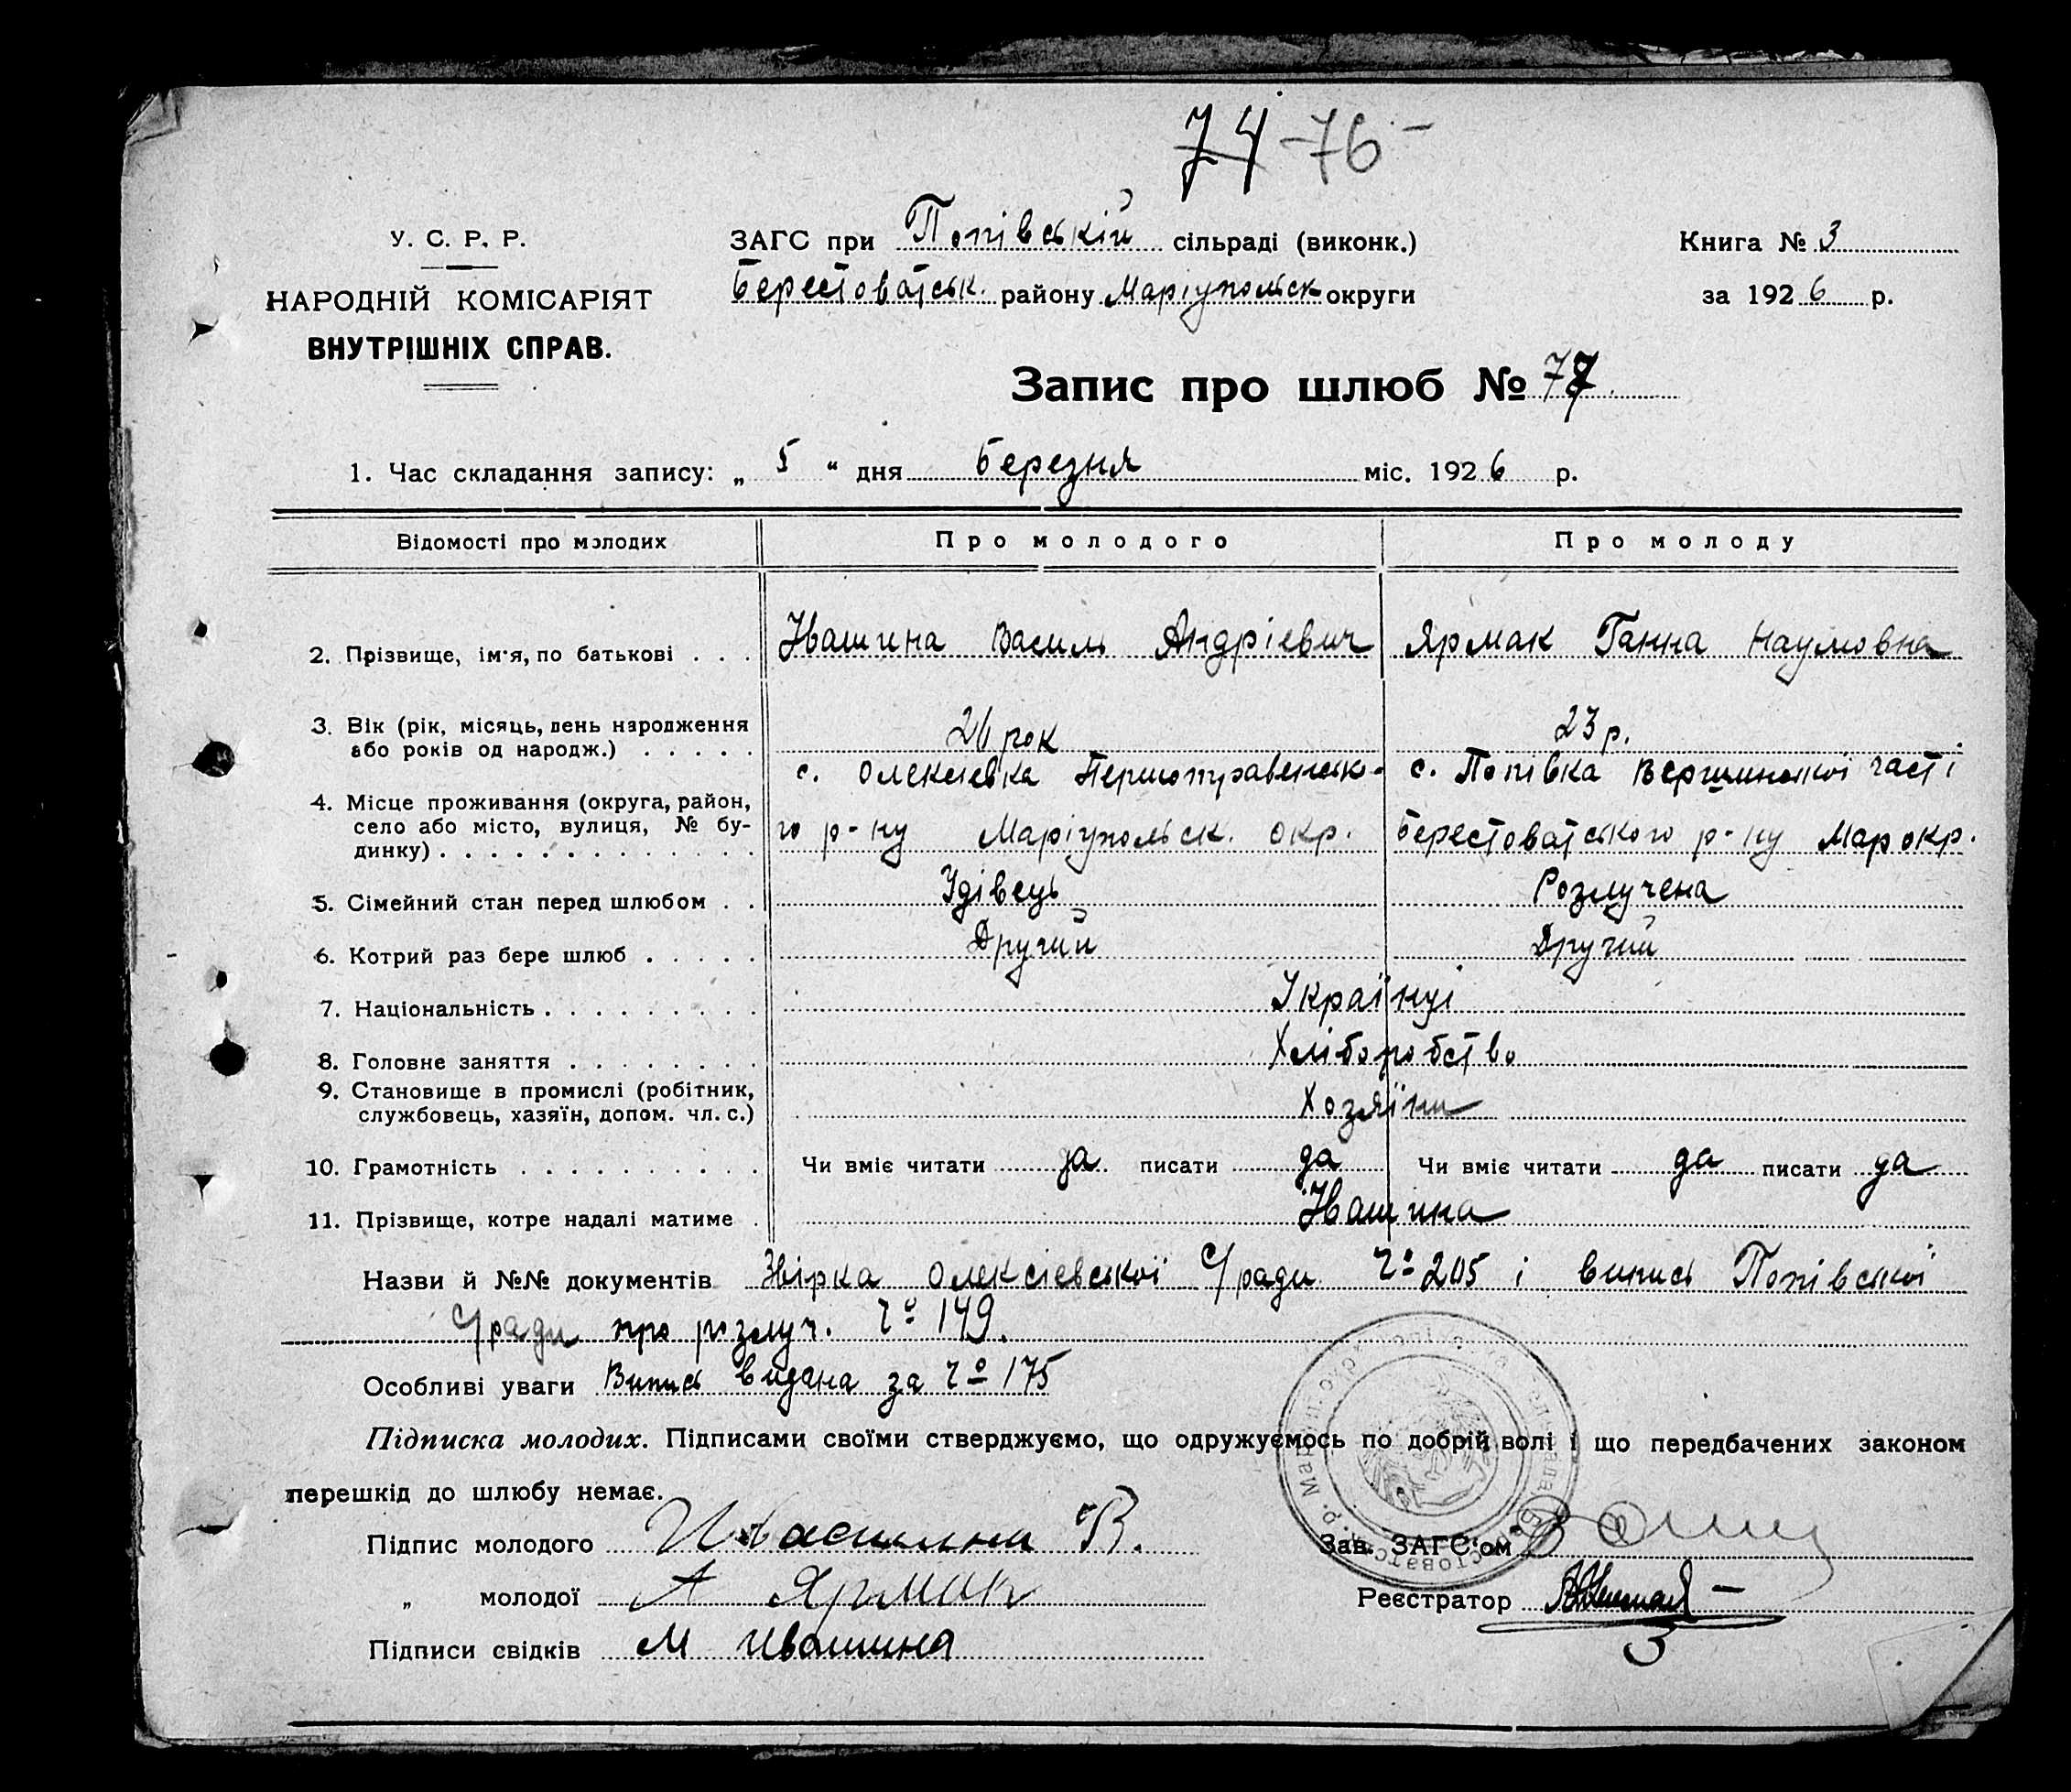 74 - 76 -
У. С. Р. Р.
НАРОДНІЙ КОМІСАРІЯТ
ВНУТРІШНІХ СПРАВ.
ЗАГС при Попівській сільраді (виконк.)
Берестоватськ. району Маріупольск округи
Книга № 3
за 1926 р.
Запис про шлюб № 77
1. Час складання запису: „ 5 “ дня Березня міс. 1926 р.
Відомості про молодих Про молодого Про молоду
2. Прізвище, ім'я, по батькові . . . Івашина Василь Андрієвич Ярмак Ганна Наумовна
3. Вік (рік, місяць, день народження
або років од народж.) . . . . . 26 рок 23 р.
4. Місце проживання (округа, район,
село або місто, вулиця, № бу-
динку) . . . . . . . . . . . . .
с. Олексіевка Першотравенсько-
го р-ну Маріупольск. окр.
с. Попівка Вершинської часті
Берестоватського р-ну Мар окр.
5. Сімейний стан перед шлюбом . . Удівець Розлучена
6. Котрий раз бере шлюб . . . . . Другий Другий
7. Національність . . . . . . . . . Українці
8. Головне заняття . . . . . . . . Хліборобство
9. Становище в промислі (робітник,
службовець, хазяїн, допом. чл. с.) Хозяїни
10. Грамотність . . . . . . . . . . Чи вміє читати да писати да Чи вміє читати да писати да
11. Прізвище, котре надалі матиме . Івашина
Назви й №№ документів Звірка Олексієвської С/ради Чо 205 і випись Попівської
С/ради про розлуч. Чо 149.
Особливі уваги Випись видана за Чо 175
Підписка молодих. Підписами своїми стверджуємо, що одружуємось по добрій волі і що передбачених законом
перешкід до шлюбу немає.
Підпис молодого Ивашина В.
„ молодої А Ярмак
Підписи свідків М Ивашина
Зав. ЗАГС'ом
Реєстратор
3